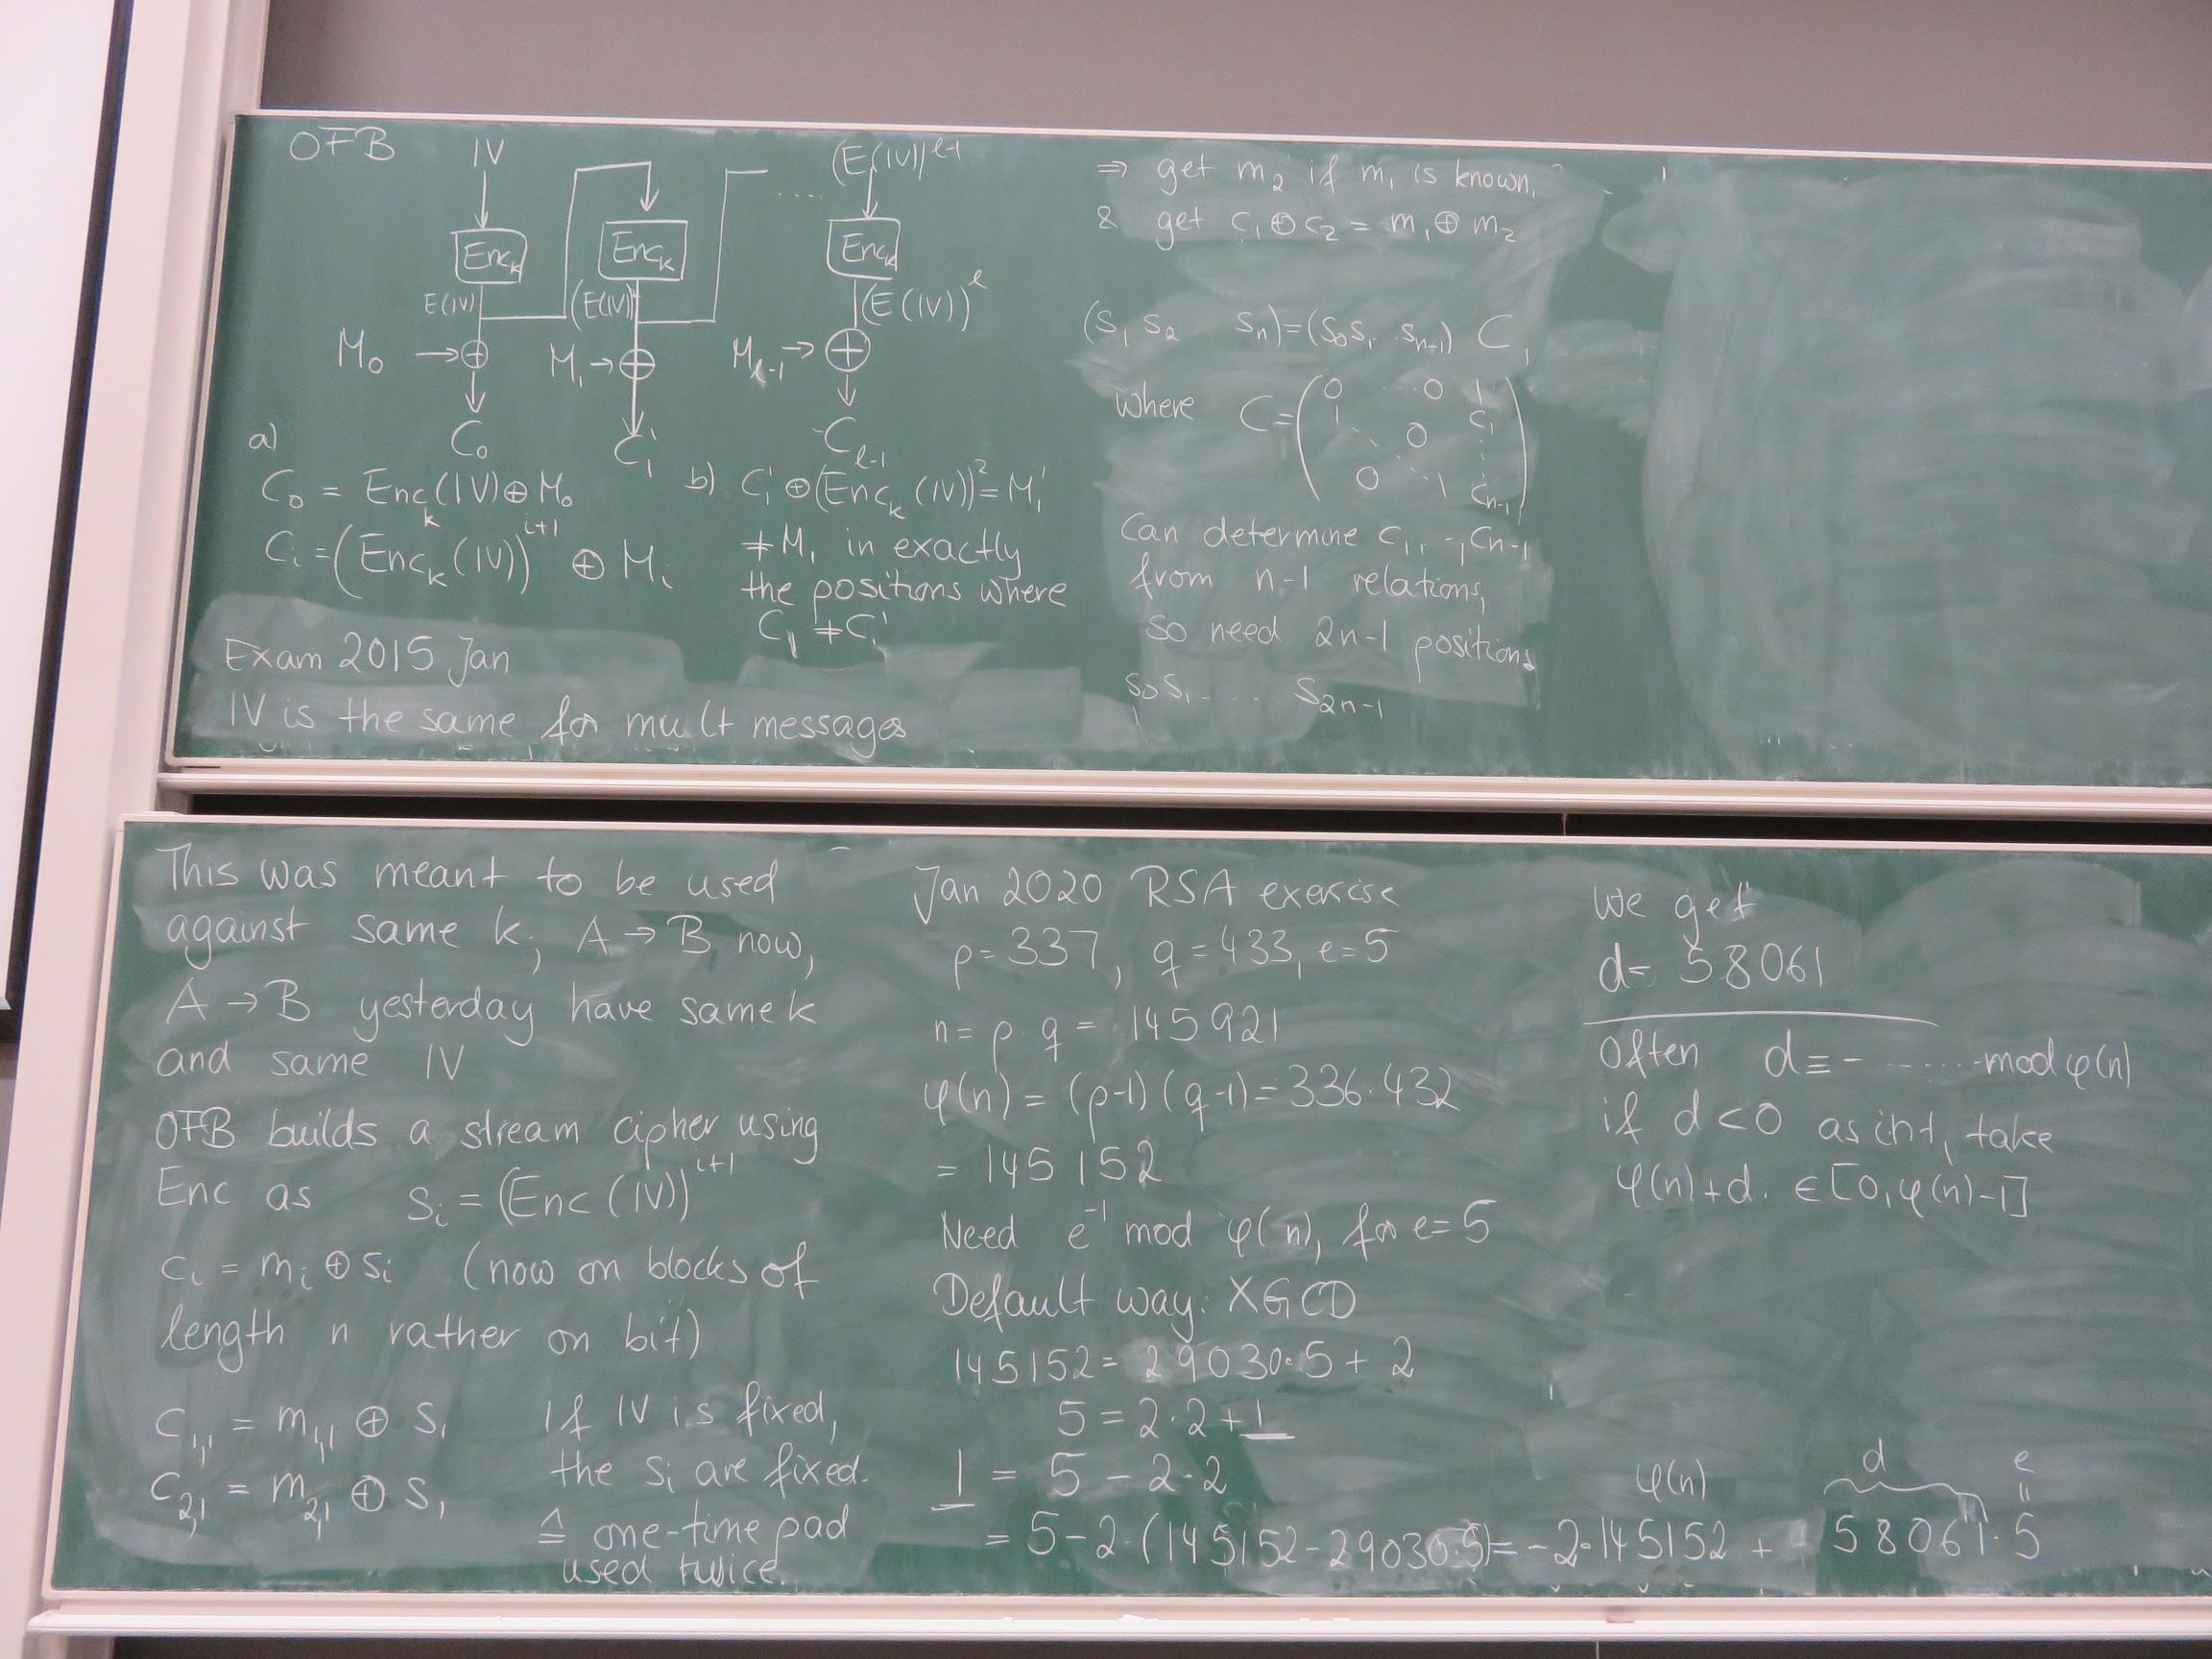 OFB
IV
(E(IV))^{l-1}
Enc_k
Enc_k
Enc_k
E(IV)
(E(IV))
(E(IV))^l
M_0 → ⊕
M_1 → ⊕
M_{l-1} → ⊕
C_0
C_1
C_{l-1}
a)
C_0 = Enc_k(IV) ⊕ M_0
C_i = (Enc_k(IV))^{i+1} ⊕ M_i
b) C_1' ⊕ (Enc_k(IV))^2 = M_1'
≠ M_1 in exactly
the positions where
C_1 ≠ C_1'
Exam 2015 Jan
IV is the same for mult messages
⇒ get m_2 if m_1 is known,
& get c_1 ⊕ c_2 = m_1 ⊕ m_2
(s_1 s_2 s_n) = (s_0 s_1 .. s_{n-1}) C,
where C = ( 0 ... 0 1
1 0 c_1
0 1 c_{n-1} )
Can determine c_1, .., c_{n-1}
from n-1 relations,
so need 2n-1 positions
s_0 s_1 .... s_{2n-1}
This was meant to be used
against same k; A → B now,
A → B yesterday have same k
and same IV
OFB builds a stream cipher using
Enc as s_i = (Enc(IV))^{i+1}
c_i = m_i ⊕ s_i (now on blocks of
length n rather on bit)
c_{1,1} = m_{1,1} ⊕ s_1
c_{2,1} = m_{2,1} ⊕ s_1
If IV is fixed,
the s_i are fixed.
≙ one-time pad
used twice.
Jan 2020 RSA exercise
p=337, q=433, e=5
n = p·q = 145921
φ(n) = (p-1)(q-1) = 336·432
= 145152
Need e^{-1} mod φ(n), for e=5
Default way: XGCD
145152 = 29030·5 + 2
5 = 2·2 + 1
1 = 5 - 2·2
φ(n) d e
= 5 - 2·(145152 - 29030·5) = -2·145152 + 58061·5
We get
d = 58061
Often d ≡ - ...... mod φ(n)
if d < 0 as int, take
φ(n) + d. ∈ [0, φ(n)-1]